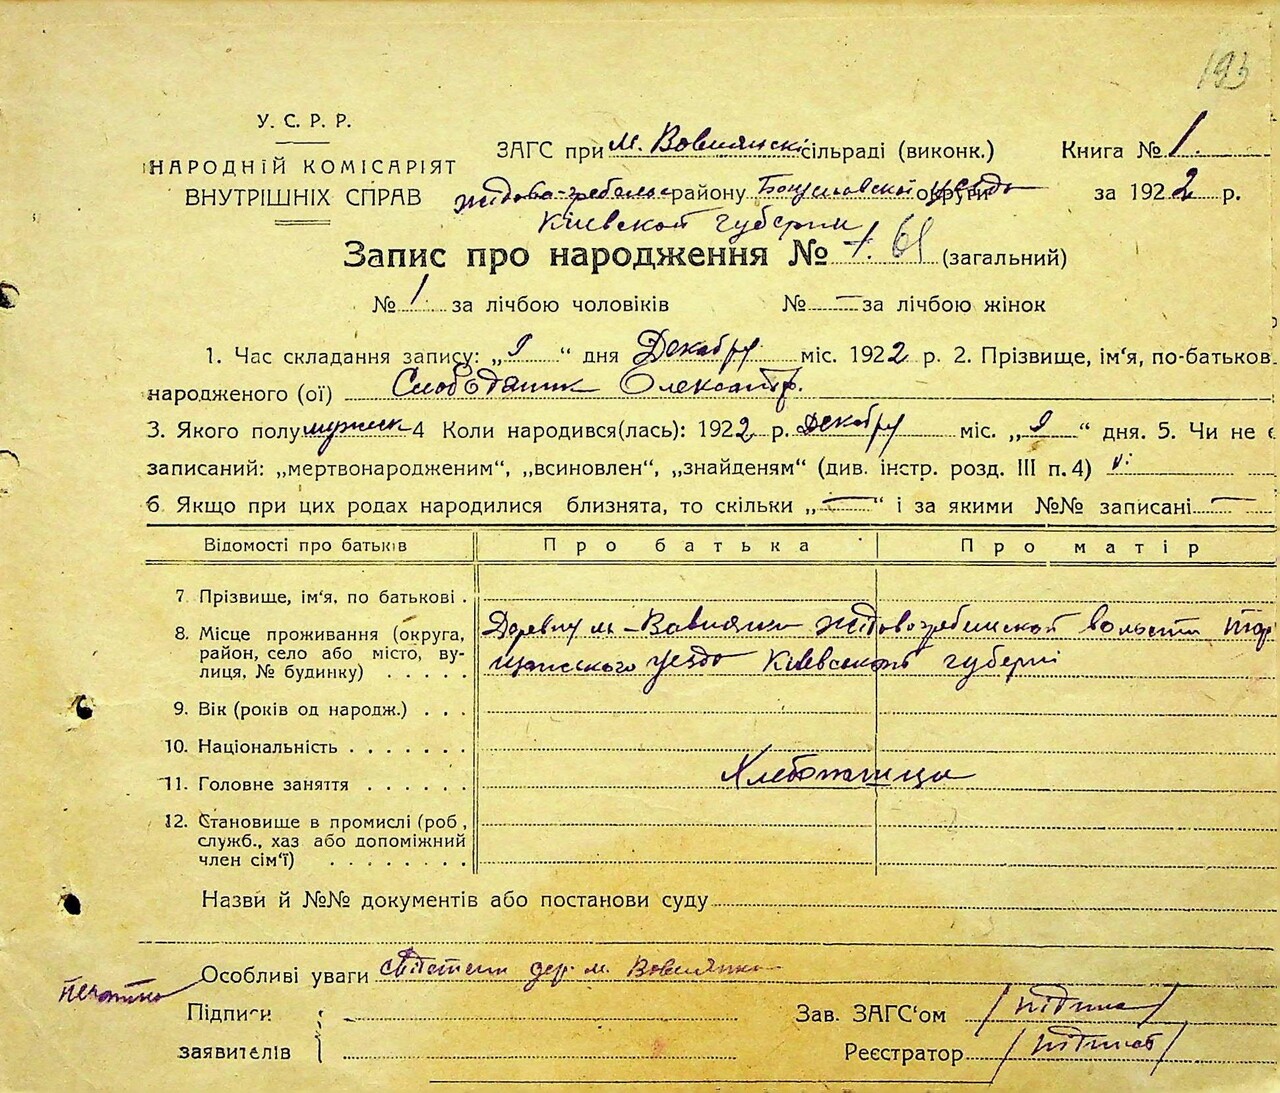 193
У. С. Р. Р.
НАРОДНІЙ КОМІСАРІЯТ
ВНУТРІШНІХ СПРАВ
ЗАГС при м. Вовнянскі сільраді (виконк.)
Книга № 1.
району округи уезда
за 1922 р.
Кіевской губернии
Запис про народження № 1. 61 (загальний)
№ 1 за лічбою чоловіків № — за лічбою жінок
1. Час складання запису: „ “ дня Декабру міс. 1922 р. 2. Прізвище, ім'я, по-батьков.
народженого (ої) Слободяник Олександр.
3. Якого полу мужск 4 Коли народився(лась): 1922 р. Декабру міс. „ “ дня. 5. Чи не є
записаний: „мертвонародженим“, „всиновлен“, „знайденям“ (див. інстр. розд. III п. 4)
6 Якщо при цих родах народилися близнята, то скільки „—“ і за якими №№ записані —
Відомості про батьків
П р о б а т ь к а
П р о м а т і р
7 Прізвище, ім'я, по батькові .
8. Місце проживання (округа,
район, село або місто, ву-
лиця, № будинку) . . . . .
Деревну м-Вовнянка волости
уезда Киевськоъ губерні
9. Вік (років од народж.) . . .
10. Національність . . . . . . .
11. Головне заняття . . . . . .
Хлебопашца
12. Становище в промислі (роб,
служб., хаз або допоміжний
член сім'ї) . . . . . . . .
Назви й №№ документів або постанови суду
Особливі уваги дер. м. Вовнянка
печатка
Підписи
заявителів
Зав. ЗАГС'ом /підпис/
Реєстратор /підпис/